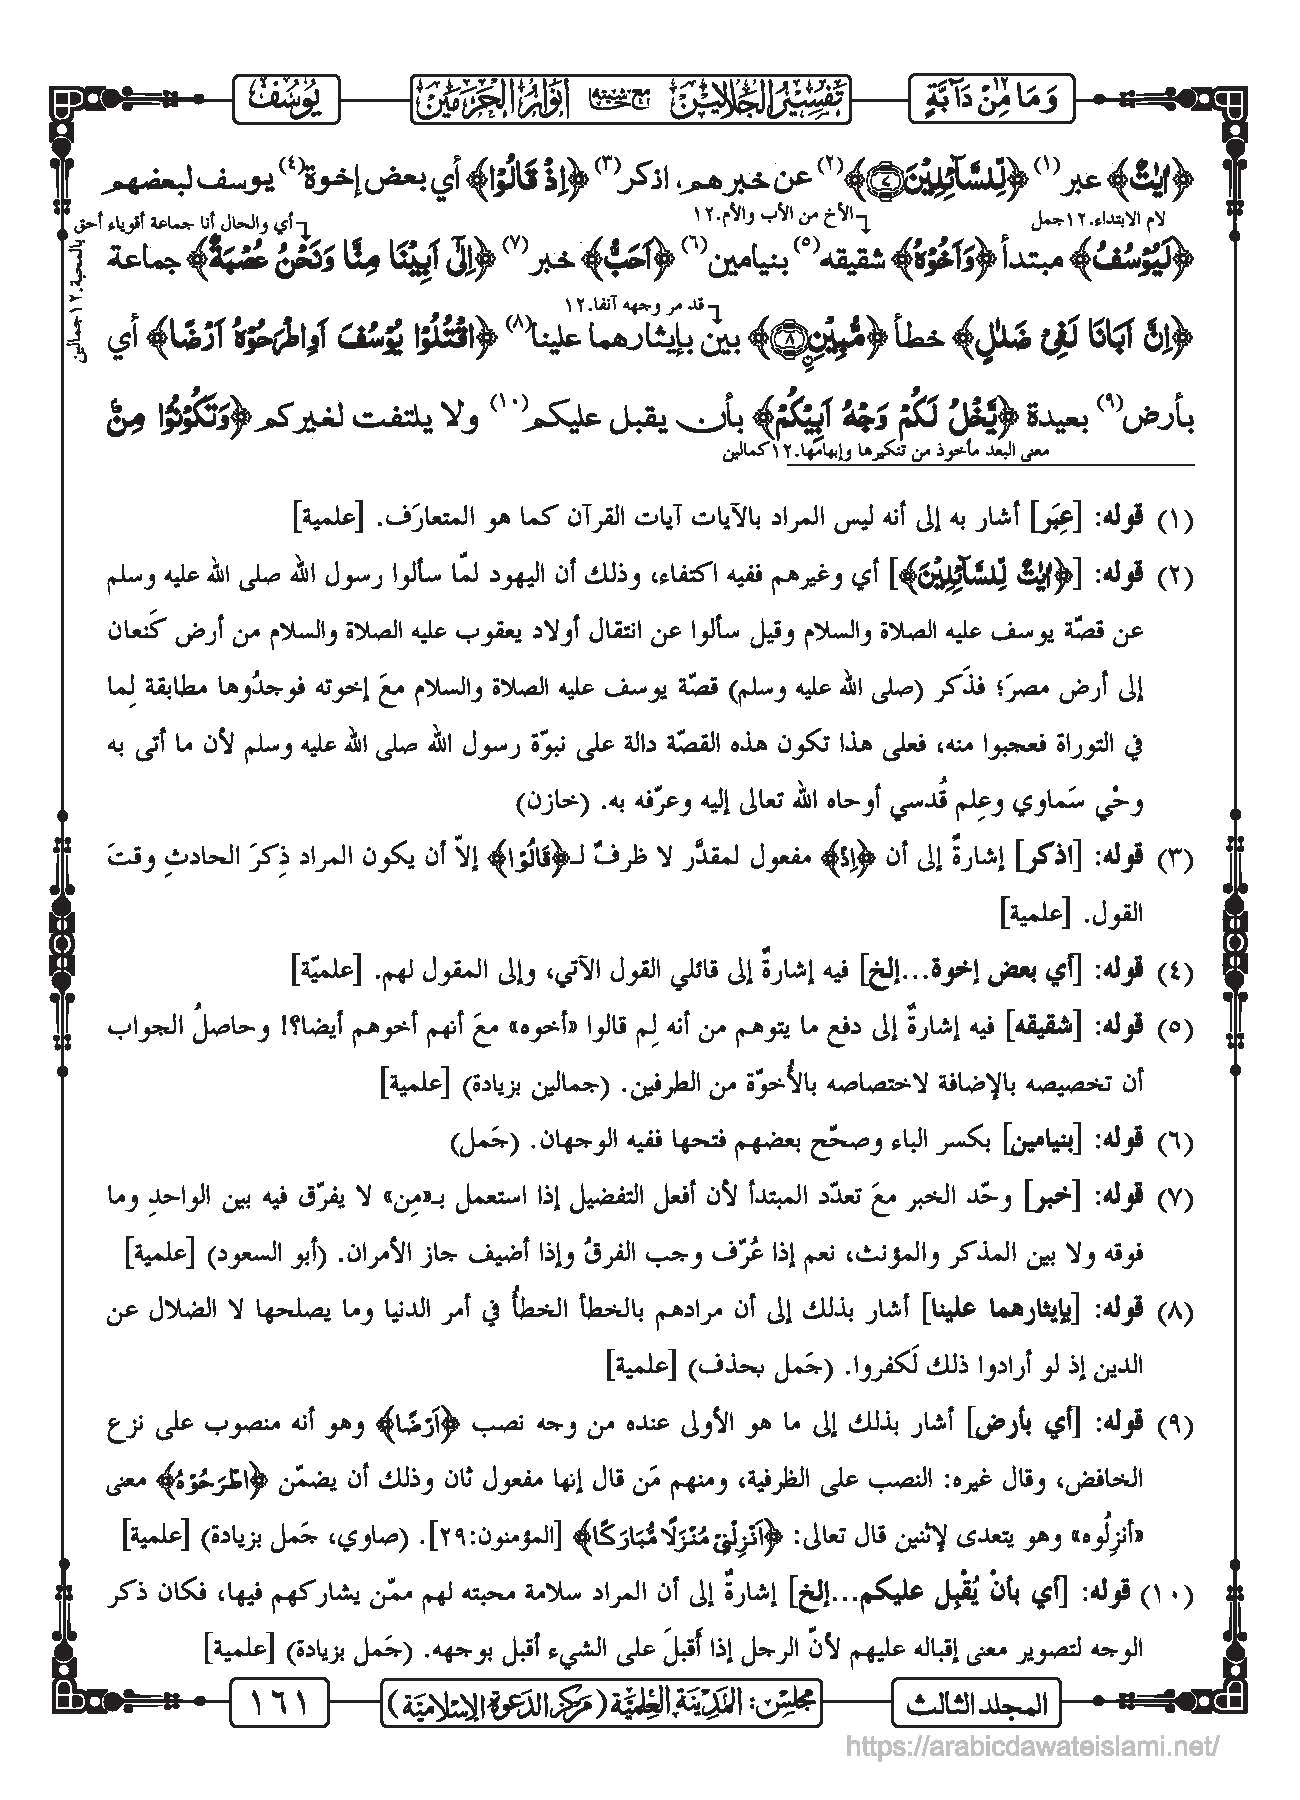 وَمَا مِنْ دَآبَّةٍ ١٢
تفسير الجلالين مع حاشيته أنوار الحرمين
يُوسُف
﴿اٰيٰتٌ﴾ عبر(١) ﴿لِّلسَّآئِلِيْنَ ۝٧﴾(٢) عن خبرهم، اذكر(٣) ﴿اِذْ قَالُوْا﴾ أي بعض إخوة(٤) يوسف لبعضهم
لام الابتداء.١٢جمل
الأخ من الأب والأم.١٢
أي والحال أنا جماعة أقوياء أحق
بالمحبة.١٢جمالين
﴿لَيُوْسُفُ﴾ مبتدأ ﴿وَاَخُوْهُ﴾ شقيقه(٥) بنيامين(٦) ﴿اَحَبُّ﴾ خبر(٧) ﴿اِلٰۤى اَبِيْنَا مِنَّا وَنَحْنُ عُصْبَةٌ﴾ جماعة
قد مر وجهه آنفا.١٢
﴿اِنَّ اَبَانَا لَفِيْ ضَلٰلٍ﴾ خطأ ﴿مُّبِيْنِ ۝٨﴾ بين بإيثارهما علينا(٨) ﴿اقْتُلُوْا يُوْسُفَ اَوِاطْرَحُوْهُ اَرْضًا﴾ أي
بأرض(٩) بعيدة ﴿يَّخْلُ لَكُمْ وَجْهُ اَبِيْكُمْ﴾ بأن يقبل عليكم(١٠) ولا يلتفت لغيركم ﴿وَتَكُوْنُوْا مِنْۢ
معنى البعد مأخوذ من تنكيرها وإبهامها.١٢كمالين
(١) قوله: [عِبَر] أشار به إلى أنه ليس المراد بالآيات آيات القرآن كما هو المتعارَف. [علمية]
(٢) قوله: [﴿اٰيٰتٌ لِّلسَّآئِلِيْنَ﴾] أي وغيرهم ففيه اكتفاء، وذلك أن اليهود لمّا سألوا رسول الله صلى الله عليه وسلم
عن قصّة يوسف عليه الصلاة والسلام وقيل سألوا عن انتقال أولاد يعقوب عليه الصلاة والسلام من أرض كَنعان
إلى أرض مصرَ؛ فذَكر (صلى الله عليه وسلم) قصّة يوسف عليه الصلاة والسلام معَ إخوته فوجدُوها مطابقة لِما
في التوراة فعجبوا منه، فعلى هذا تكون هذه القصّة دالة على نبوّة رسول الله صلى الله عليه وسلم لأن ما أتى به
وحْي سَماوي وعِلم قُدسي أوحاه الله تعالى إليه وعرّفه به. (خازن)
(٣) قوله: [اذكر] إشارةٌ إلى أن ﴿اِذْ﴾ مفعول لمقدَّر لا ظرفٌ لـ﴿قَالُوْا﴾ إلاّ أن يكون المراد ذِكرَ الحادثِ وقتَ
القول. [علمية]
(٤) قوله: [أي بعض إخوة...إلخ] فيه إشارةٌ إلى قائلي القول الآتي، وإلى المقول لهم. [علميّة]
(٥) قوله: [شقيقه] فيه إشارةٌ إلى دفع ما يتوهم من أنه لِم قالوا «أخوه» معَ أنهم أخوهم أيضا؟! وحاصلُ الجواب
أن تخصيصه بالإضافة لاختصاصه بالأُخوّة من الطرفين. (جمالين بزيادة) [علمية]
(٦) قوله: [بنيامين] بكسر الباء وصحّح بعضهم فتحها ففيه الوجهان. (جَمل)
(٧) قوله: [خبر] وحّد الخبر معَ تعدّد المبتدأ لأن أفعل التفضيل إذا استعمل بـ«مِن» لا يفرّق فيه بين الواحدِ وما
فوقه ولا بين المذكر والمؤنث، نعم إذا عُرّف وجب الفرقُ وإذا أضيف جاز الأمران. (أبو السعود) [علمية]
(٨) قوله: [بإيثارهما علينا] أشار بذلك إلى أن مرادهم بالخطأ الخطأُ في أمر الدنيا وما يصلحها لا الضلال عن
الدين إذ لو أرادوا ذلك لَكفروا. (جَمل بحذف) [علمية]
(٩) قوله: [أي بأرض] أشار بذلك إلى ما هو الأولى عنده من وجه نصب ﴿اَرْضًا﴾ وهو أنه منصوب على نزع
الخافض، وقال غيره: النصب على الظرفية، ومنهم مَن قال إنها مفعول ثان وذلك أن يضمّن ﴿اطْرَحُوْهُ﴾ معنى
«أنزِلُوه» وهو يتعدى لإثنين قال تعالى: ﴿اَنْزِلْنِيْ مُنْزَلًا مُّبَارَكًا﴾ [المؤمنون:٢٩]. (صاوي، جَمل بزيادة) [علمية]
(١٠) قوله: [أي بأنْ يُقْبِل عليكم...إلخ] إشارةٌ إلى أن المراد سلامة محبته لهم ممّن يشاركهم فيها، فكان ذكر
الوجه لتصوير معنى إقباله عليهم لأنّ الرجل إذا أَقبلَ على الشيء أقبل بوجهه. (جَمل بزيادة) [علمية]
المجلد الثالث
مجلس: المدينة العلمية (مركز الدعوة الإسلامية)
١٦١
https://arabicdawateislami.net/